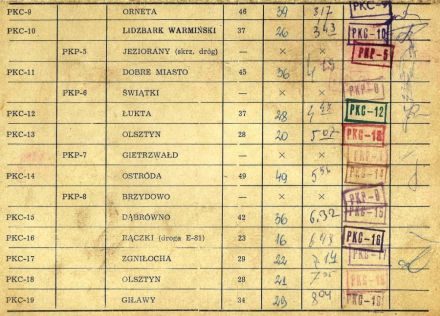 PKC-9 ORNETA 46 34 3/7 PKC-9
PKC-10 LIDZBARK WARMIŃSKI 37 26 3 43 PKC-10
PKP-5 JEZIORANY (skrz. dróg) — × × PKP-5
PKC-11 DOBRE MIASTO 45 36 4 19
PKP-6 ŚWIĄTKI — × × PKP-6
PKC-12 ŁUKTA 37 28 4 47 PKC-12
PKC-13 OLSZTYN 28 20 5 07 PKC-13
PKP-7 GIETRZWAŁD — × ×
PKC-14 OSTRÓDA 49 49 5 56 PKC-14
PKP-8 BRZYDOWO — × × PKP-8
PKC-15 DĄBRÓWNO 42 36 6.32 PKC-15
PKC-16 RĄCZKI (droga E-81) 23 16 6 48 PKC-16
PKC-17 ZGNIŁOCHA 29 22 PKC-17
PKC-18 OLSZTYN 28 21 PKC-18
PKC-19 GIŁAWY 34 29 8 04